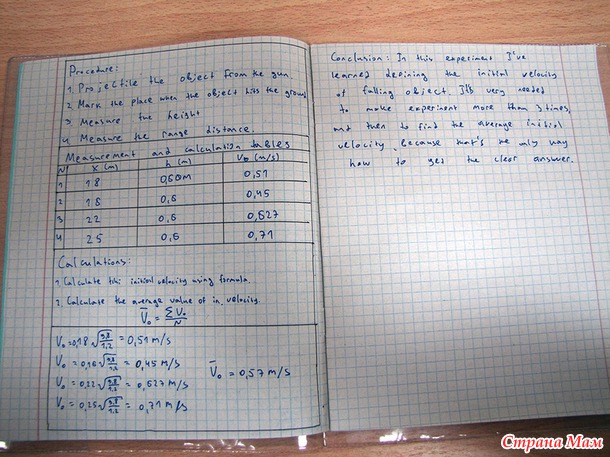 Procedure:
1. Projectile the object from the gun
2. Mark the place when the object hits the ground
3. Measure the height
4. Measure the range distance.
Measurement and calculation tables
N X (m) h (m) V0 (m/s)
1 18 0,60m 0,51
2 16 0,6 0,45
3 22 0,6 0,627
4 25 0,6 0,71
Calculations:
1. Calculate the initial velocity using formula.
2. Calculate the average value of in. velocity.
V̄0 = ΣV0/N
V0 = 0,18 √(9,8/1,2) = 0,51 m/s
V0 = 0,16 √(9,8/1,2) = 0,45 m/s
V0 = 0,22 √(9,8/1,2) = 0,627 m/s
V0 = 0,25 √(9,8/1,2) = 0,71 m/s
V̄0 = 0,57 m/s
Conclusion: In this experiment I've
learned defining the initial velocity
of falling object. It's very needed
to make experiment more than 3 times,
and then to find the average initial
velocity, because that's the only way
how to get the clear answer.
Страна Мам